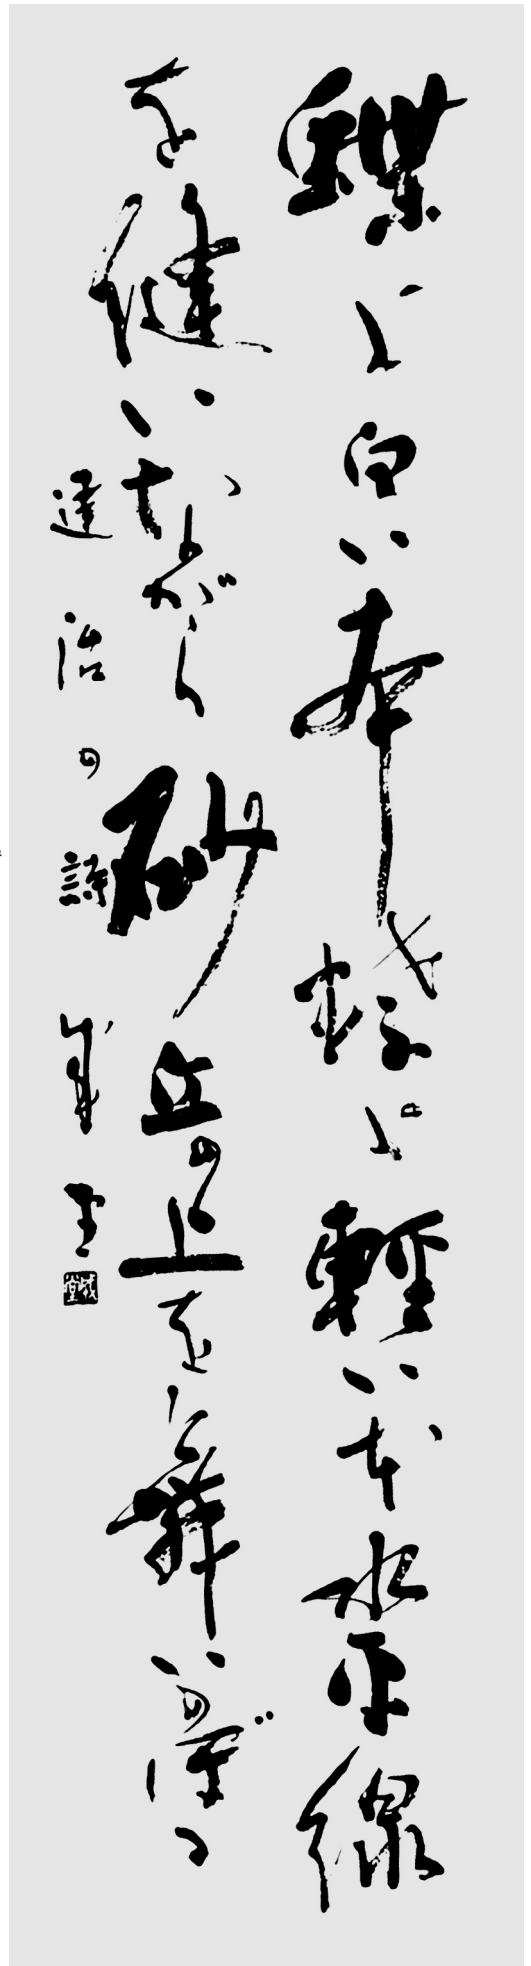 蝶よ白い本蝶よ輕い本水平線
を縫いながら砂丘の上を舞いのぼる
達治の詩 成堂
成堂